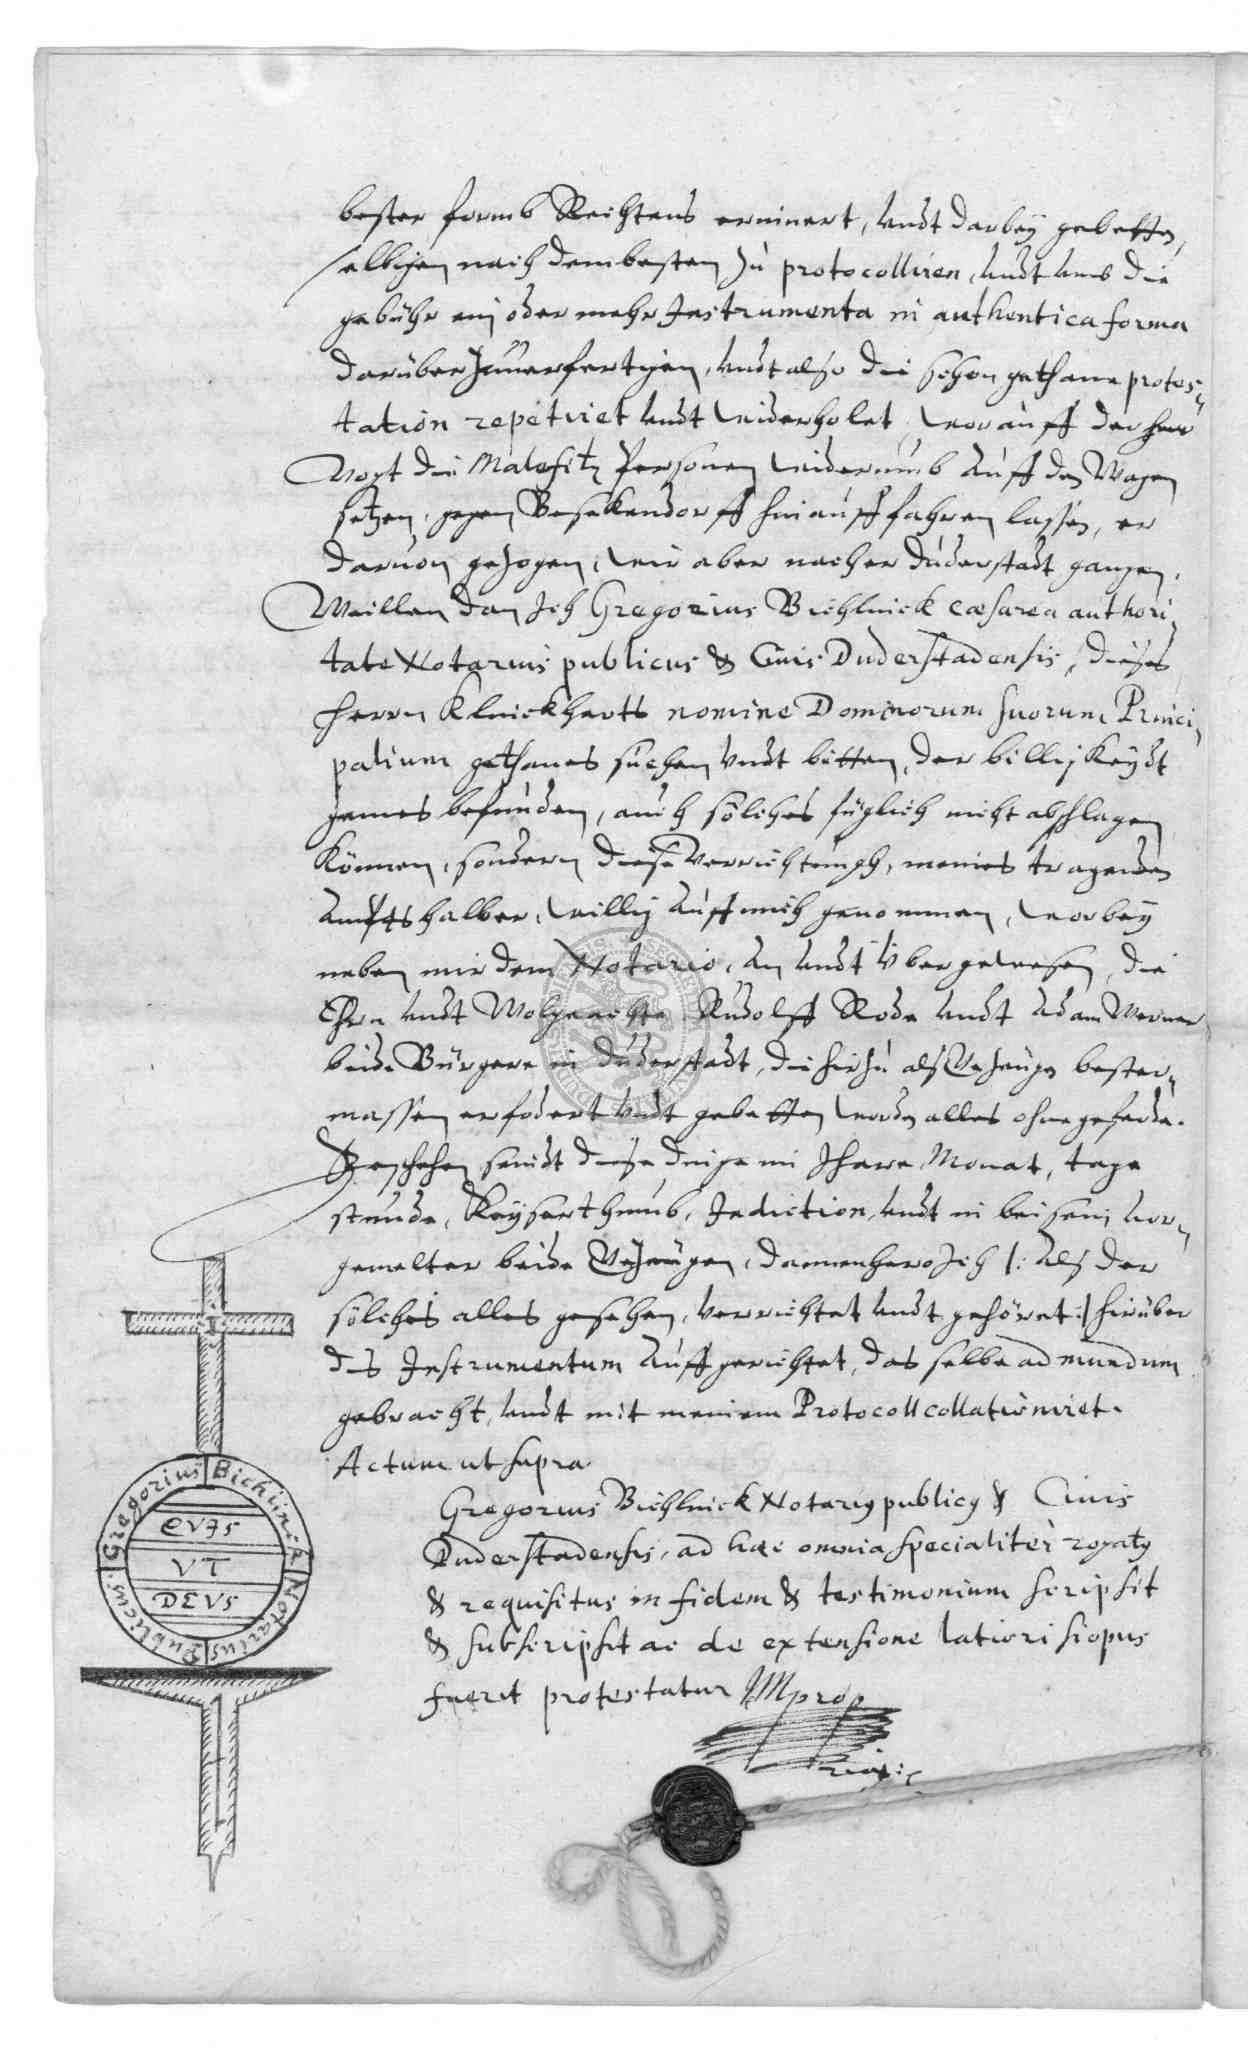 bester formb Rechtens erinnert, undt darbey gebetten,
selbigen nach dem besten zu protocolliren, undt umb die
gebühr ein oder mehr Instrumenta in authentica forma
darüber zuverfertigen, undt also die schon gethane protes-
tation repetiret undt widerholet, worauff der herr
Vogt die Malefitz Personen widerumb auff den Wagen
setzen, gegen Besekendorff hinauff fahren lassen, er
daruon gezogen, wir aber nacher Duderstadt gangen.
Weillen dan Ich Gregorius Bichlnick cæsarea authori-
tate Notarius publicus & Civis Duderstadensis, dieses
herrn Klinckharts nomine Dominorum suorum Princi-
palium gethanes suchen undt bitten, der billigkeydt
gemes befunden, auch solches füglich nicht abschlagen
können, sondern diese verrichtungh, meines tragenden
ampts halber, willig auff mich genommen, worbey
neben mir dem Notario, an undt über gewesen, die
Ehrn undt Wolgeachte Rudolff Rode undt Adam Werner
beide Bürgere in Duderstadt, die hirzu als Gezeugen bester-
massen erfodert undt gebetten worden alles ohne geferde.
Geschehen seindt diese dinge im Ihare, Monat, tage
stunde, Keyserthumb, Indiction, undt in beisein vor-
gemelter beide Gezeugen, dannenhero Ich /: als der
solches alles gesehen, verrichtet undt gehöret :/ hirüber
dis Instrumentum auffgerichtet, das selbe ad mundum
gebracht, undt mit meinem Protocoll collationiret.
Actum ut supra
Gregorius Bichlnick Notarius publicus & Civis
Duderstadensis, ad hæc omnia specialiter rogatus
& requisitus in fidem & testimonium scripsit
& subscripsit ac de extensione latiori si opus
fuerit protestatur Mprop
ria
Gregorius Bichlinick Notarius Publicus
VT
DEVS